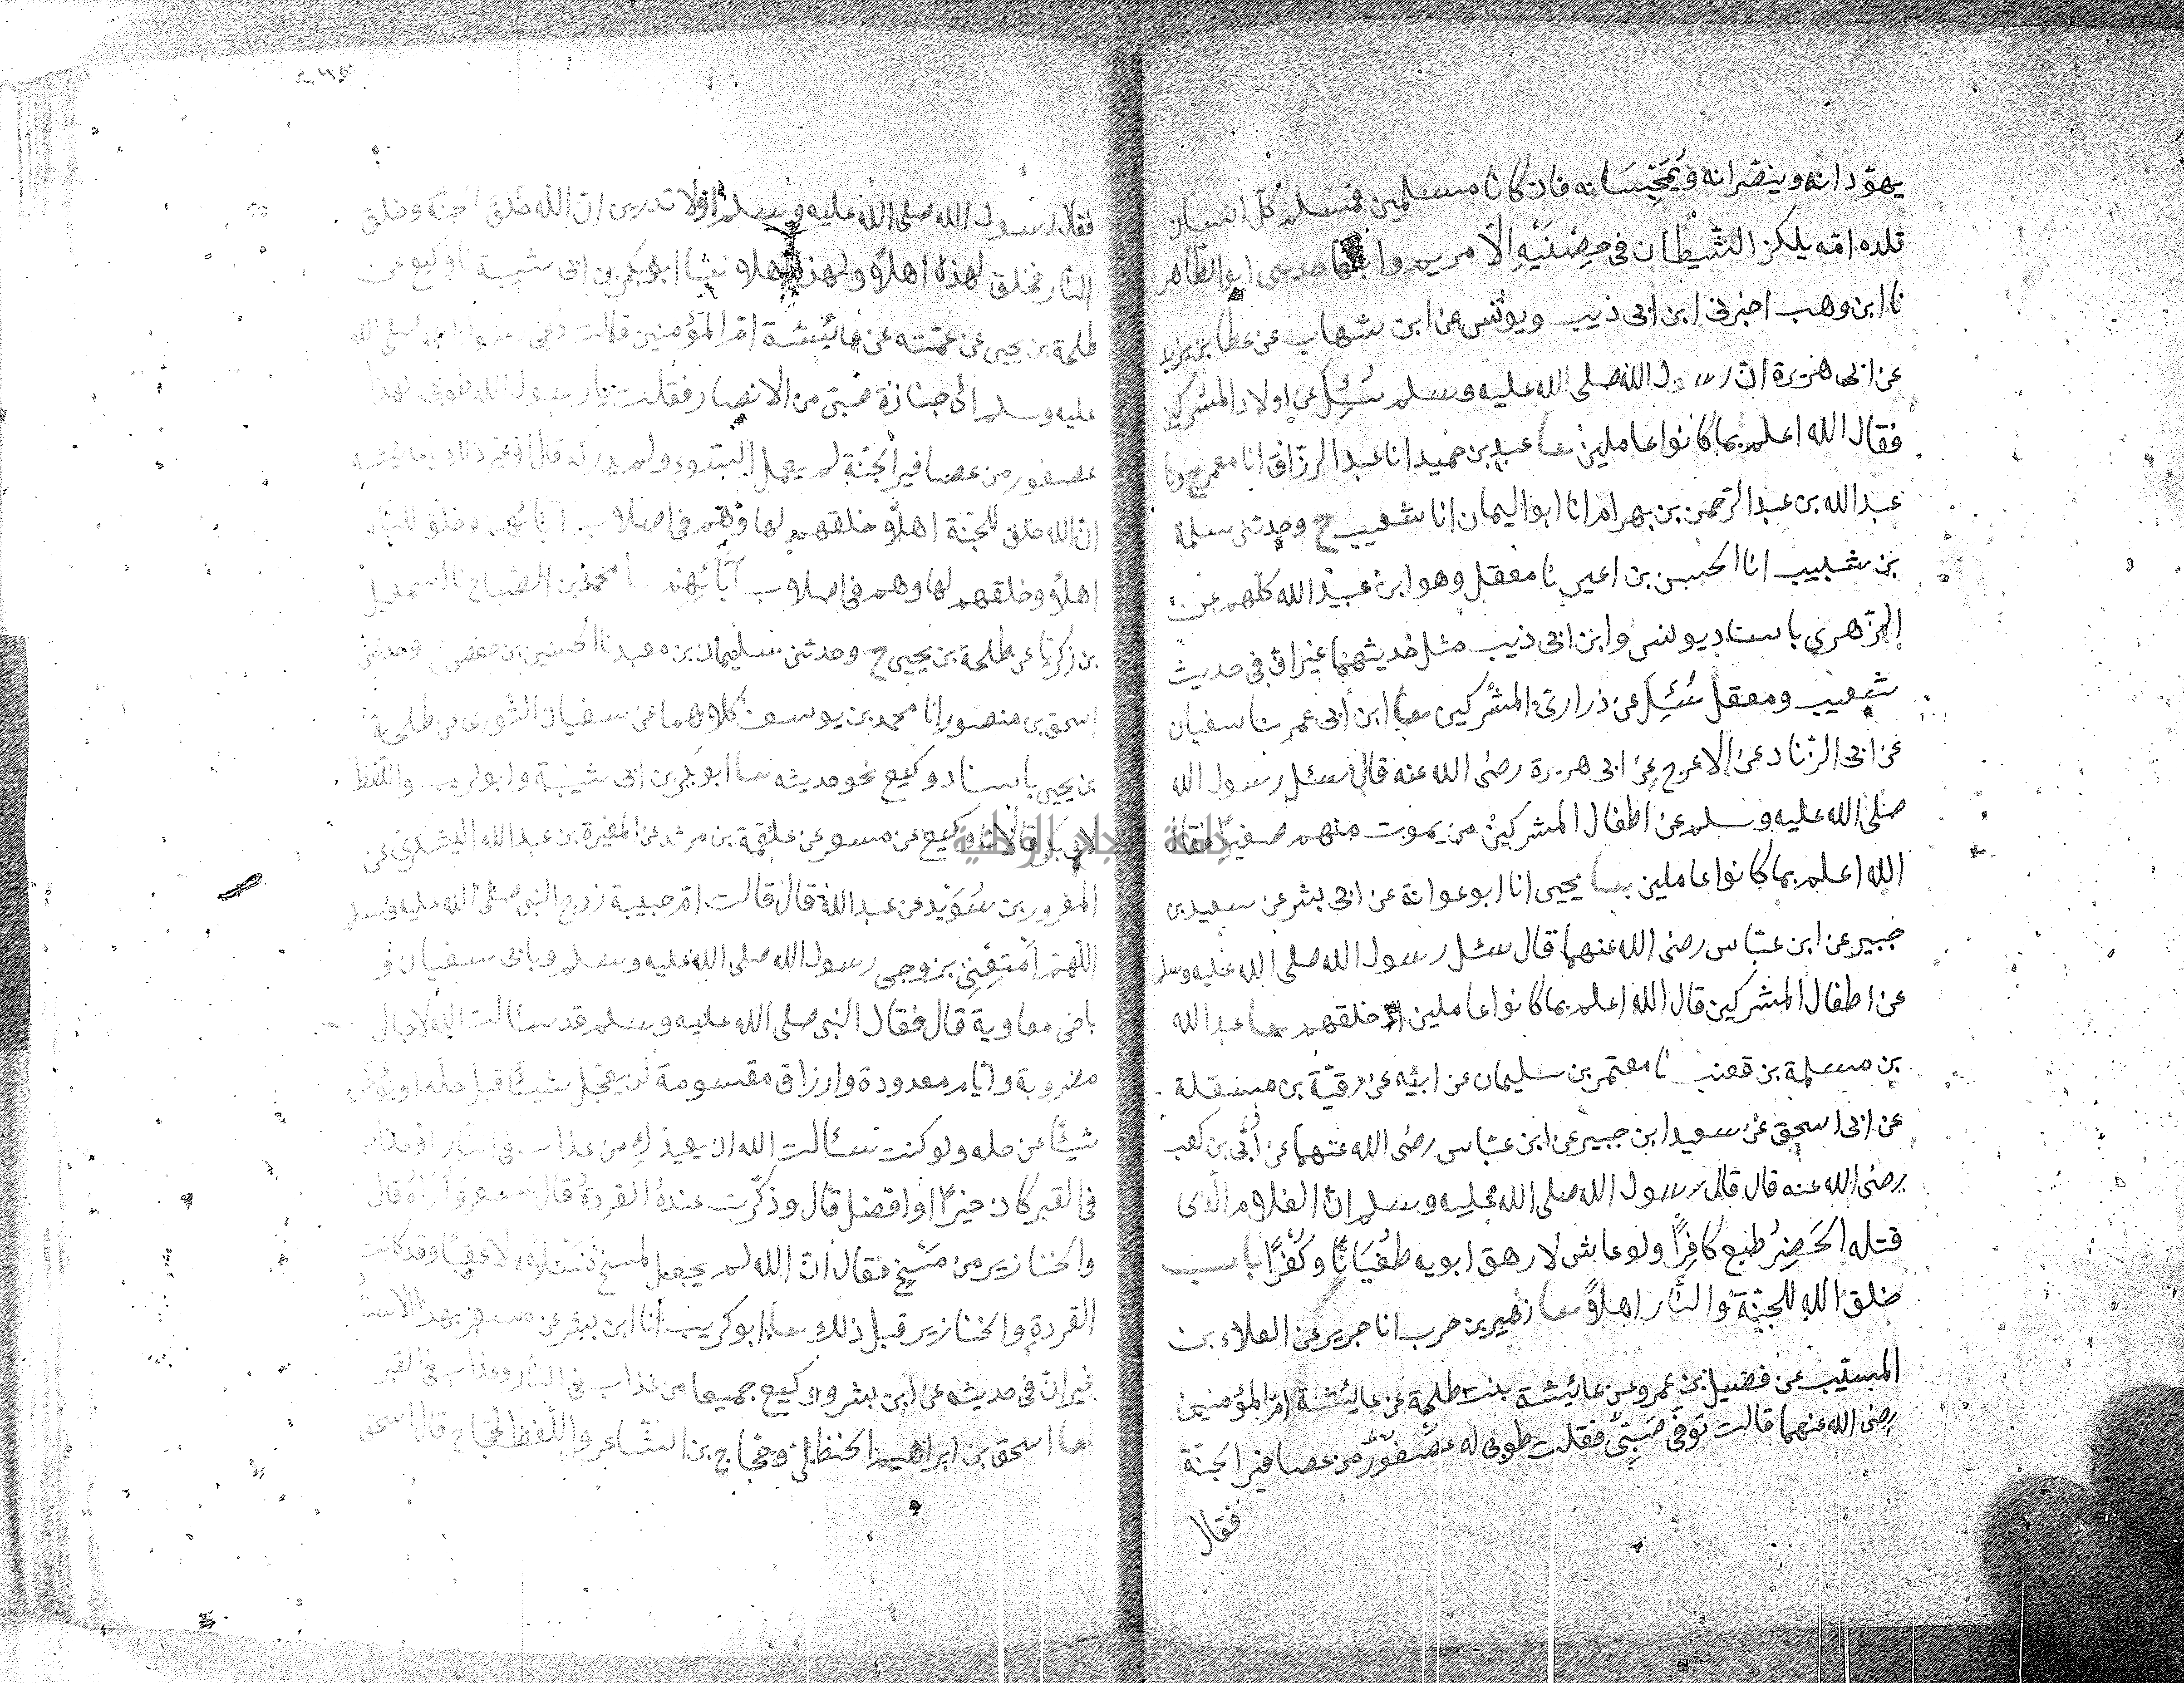 يهوّدانه وينصّرانه ويُمَجِّسَانه فان كانا مسلمين فمسلم كلّ انسان
تلده امّه يلكز الشّيطان في حِضْنَيْهِ الّا مريم وابنها حدثنى ابوالطّاهر
نا ابن وهب اخبرنى ابن ابى ذيب ويونس عن ابن شهاب عن عطا بن يزيد
عن ابى هريرة انّ رسول الله صلى الله عليه وسلم سُئِلَ عن اولاد المشركين
فقال الله اعلم بما كانوا عاملين حدثنا عبد بن حميد انا عبد الرزّاق انا معمر ح ونا
عبد الله بن عبد الرّحمن بن بهرام انا ابو اليمان انا شعيب ح وحدثنى سلمة
بن شبيب انا الحسن بن اعين نا معقل وهو ابن عبيد الله كلّهم عن
الزّهرى باسناد يونس وابن ابى ذيب مثل حديثهما غير انّ فى حديث
شعيب ومعقل سُئِلَ عن ذرارىّ المشركين حدثنا ابن أبى عمر نا سفيان
عن ابى الزّناد عن الاعرج عن ابى هريرة رضى الله عنه قال سئل رسول الله
صلى الله عليه وسلم عن اطفال المشركين من يموت منهم صغيرًا فقال
الله اعلم بما كانوا عاملين حدثنا يحيى انا ابو عوانة عن ابى بشر عن سعيد بن
جبير عن ابن عبّاس رضى الله عنهما قال سئل رسول الله صلى الله عليه وسلم
عن اطفال المشركين قال الله اعلم بما كانوا عاملين اذ خلقهم حدثنا عبد الله
بن مسلمة بن قعنب نا معتمر بن سليمان عن ابيه عن رقبة بن مسقلة
عن ابى اسحق عن سعيد ابن جبير عن ابن عبّاس رضى الله عنهما عن أُبىّ بن كعب
رضى الله عنه قال قال رسول الله صلى الله عليه وسلم انّ الغلام الّذى
قتله الخَضِرُ طبع كافِرًا ولو عاش لارهق ابويه طُغيَانًا وكُفْرًا باب
خلق الله للجنّة والنّار اهلًا حدثنا زهير بن حرب انا جرير عن العلاء بن
المسيّب عن فضيل بن عمرو عن عائيشة بنت طلحة عن عائيشة امّ المؤمنين
رضى الله عنهما قالت توفّى صَبِىٌّ فقلت طوبى له عصفورٌ من عصافير الجنّة
فقال
فقال رسول الله صلى الله عليه وسلم اوَلا تدرين انّ الله خلق الجنّة وخلق
النّار فخلق لهذه اهلًا ولهذه اهلا حدثنا ابو بكر بن ابى شيبة نا وكيع عن
طلحة بن يحيى عن عمّته عن عائيشة امّ المؤمنين قالت دُعى رسول الله صلى الله
عليه وسلم الى جنازة صبىّ من الانصار فقلت يا رسول الله طوبى لهذا
عصفور من عصافير الجنّة لم يعمل السّوء ولم يدركه قال اوَغير ذلك يا عائيشه
انّ الله خلق للجنّة اهلًا خلقهم لها وهُم فى اصلاب آبائهم وخلق للنّار
اهلًا وخلقهم لها وهم فى اصلاب آبَائِهِم حدثنا محمد بن الصّباح نا اسمعيل
بن زكريّا عن طلحة بن يحيى ح وحدثنى سليمان بن معبد نا الحسين بن حفص وحدثنى
اسحق بن منصور انا محمد بن يوسف كلاهما عن سفيان الثّورى عن طلحة
بن يحيى باسناد وكيع نحو حديثه حدثنا ابو بكر بن ابى شيبة وابو كريب واللّفظ
لابى بكر قالا نا وكيع عن مسعر عن علقمة بن مرثد عن المغيرة بن عبد الله اليشكرى عن
المعرور بن سُوَيْد عن عبد الله قال قالت امّ حبيبة زوج النبى صلى الله عليه وسلم
اللهمّ امْتِعْنِى بزوجى رسول الله صلى الله عليه وسلم وبابى سفيان و
باخى معاوية قال فقال النبى صلى الله عليه وسلم قد سئالت الله لاجال
مضروبة وايّام معدودة وارزاق مقسومة لن يعجّل شيئًا قبل حلّه او يؤخّر
شيئًا عن حله ولو كنت سئالت الله ان يعيذكِ من عذاب فى النّار او عذاب
فى القبر كان خيرًا او افضل قال وذُكّرت عندهُ القردةُ قال مسعر واُراه قال
والخنازير من مَسْخٍ فقال انّ الله لم يجعل لمسخ نَسْلًا ولا عقبًا وقد كانت
القردة والخنازير قبل ذلك حدثنا ابو كريب انا ابن بشر عن مسعر بهذا الاسناد
غير انّ فى حديثه عن ابن بشر ووكيع جميعا من عذاب فى النّار وعذاب فى القبر
حدثنا اسحق بن ابراهيم الحنظلىّ وحجّاج بن الشّاعر واللّفظ لحجّاج قال اسحق